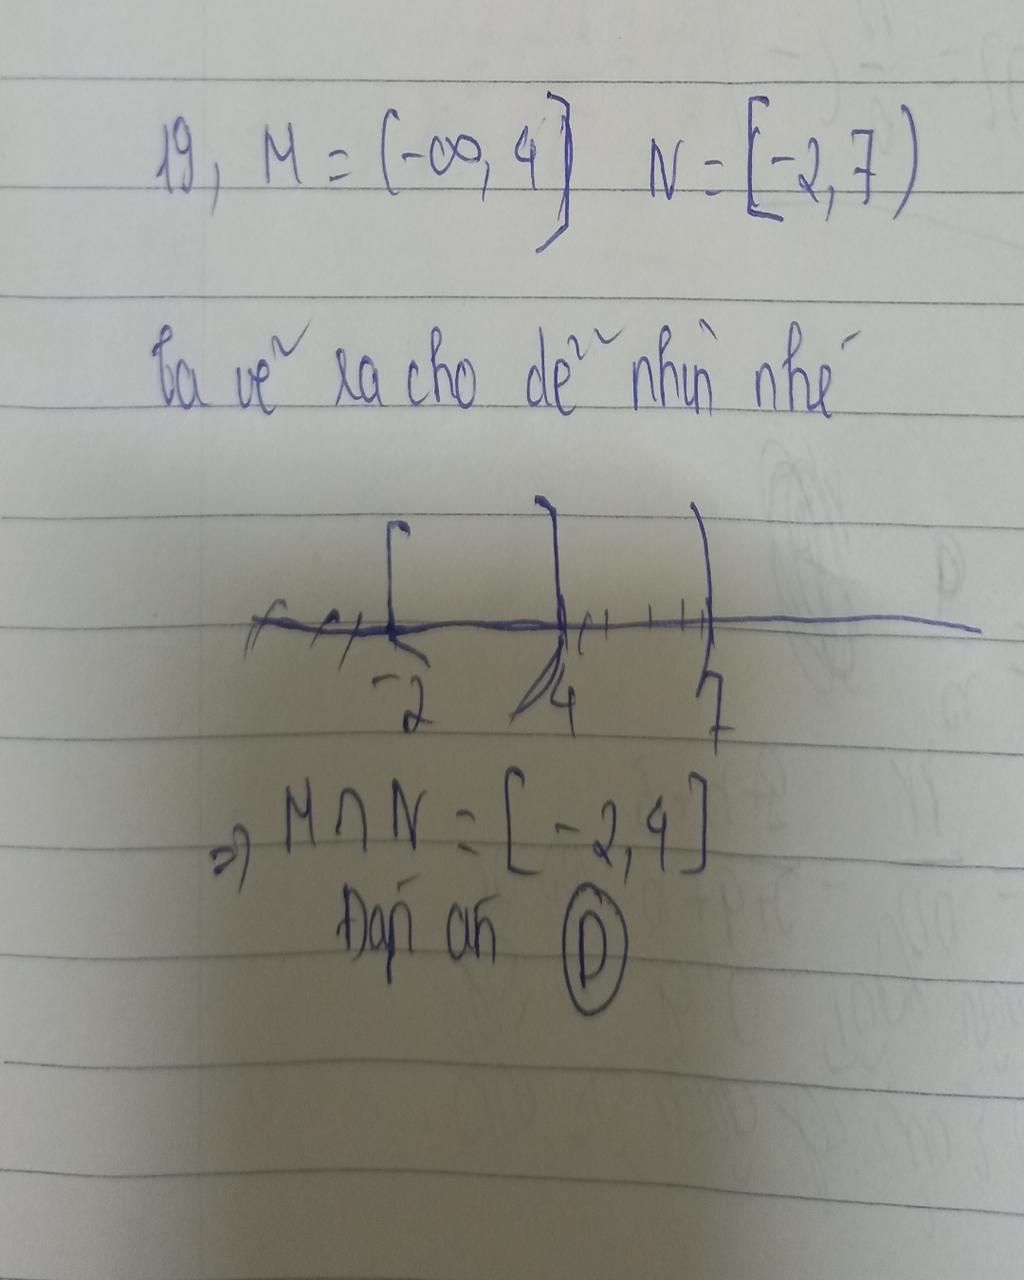 19, M = (-∞, 4] N = [-2, 7)
ta vẽ ra cho dễ nhìn nhé
-2 4 7
=> M ∩ N = [-2, 4]
Đáp án D